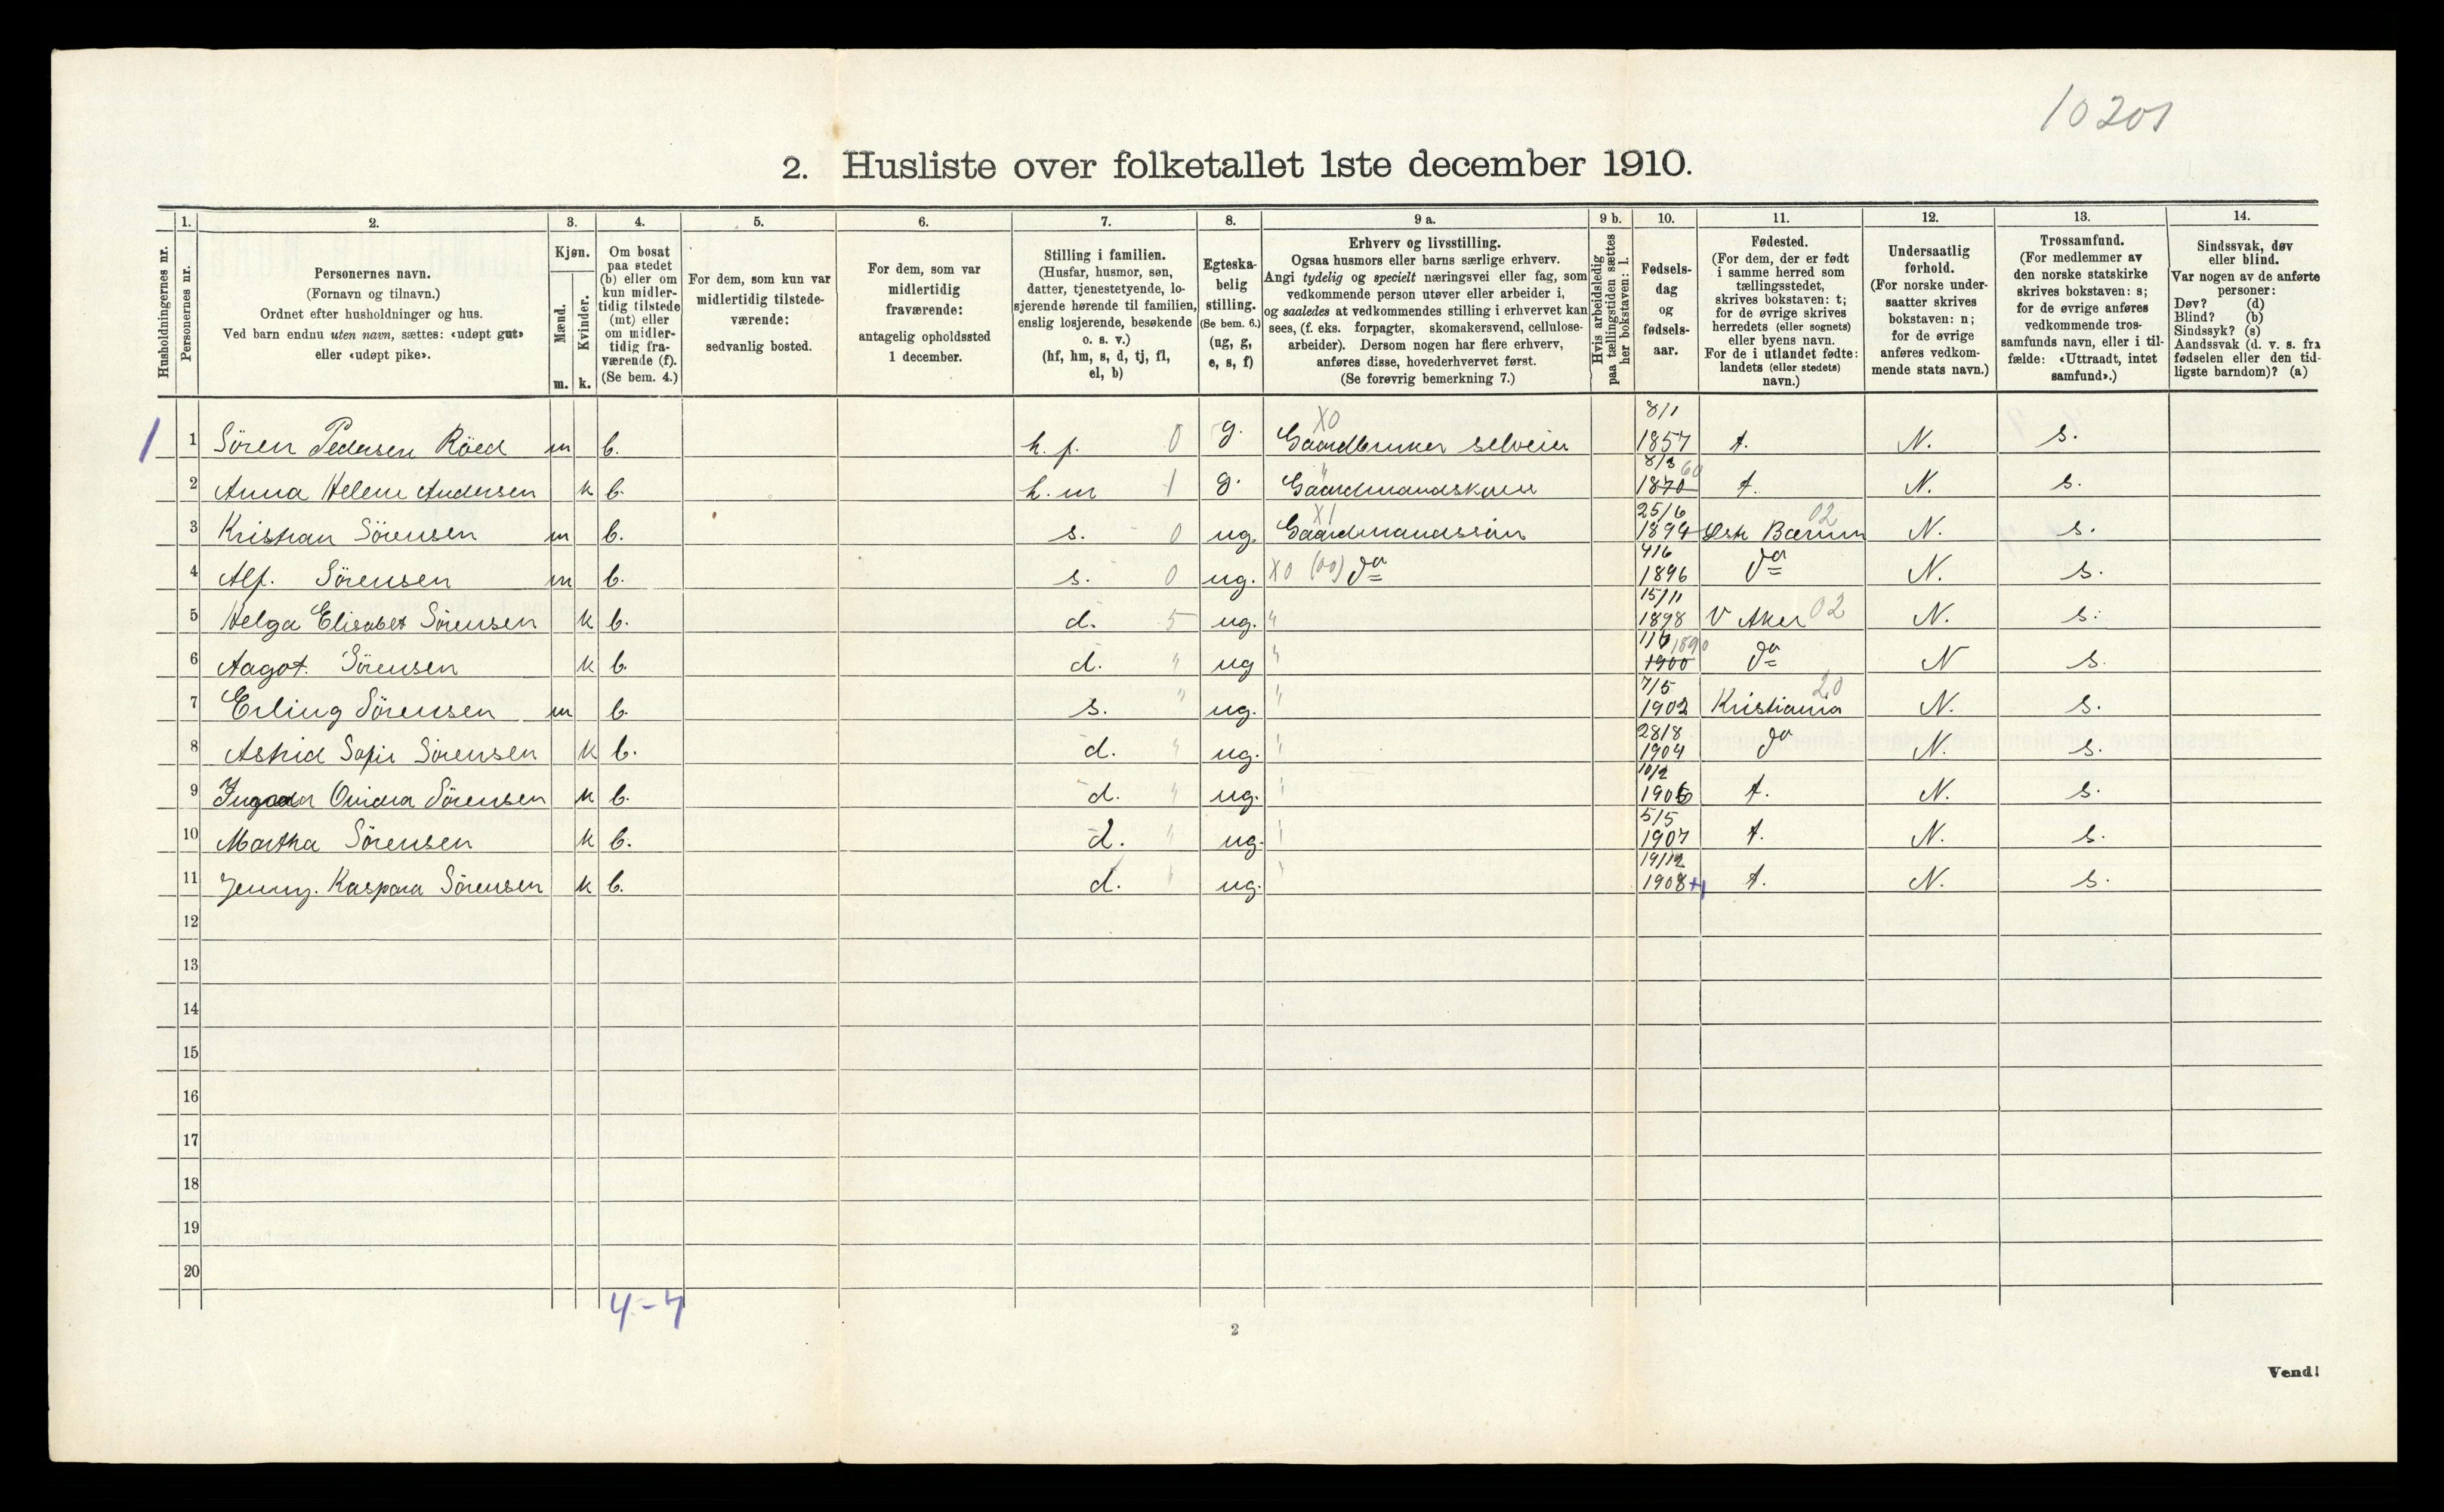 10201
2. Husliste over folketallet 1ste december 1910.
Husholdningernes nr.
1.
Personernes nr.
2.
Personernes navn.
(Fornavn og tilnavn.)
Ordnet efter husholdninger og hus.
Ved barn endnu uten navn, sættes: «udøpt gut»
eller «udøpt pike».
3.
Kjøn.
Mænd.
Kvinder.
m. k.
4.
Om bosat
paa stedet
(b) eller om
kun midler-
tidig tilstede
(mt) eller
om midler-
tidig fra-
værende (f).
(Se bem. 4.)
5.
For dem, som kun var
midlertidig tilstede-
værende:
sedvanlig bosted.
6.
For dem, som var
midlertidig
fraværende:
antagelig opholdssted
1 december.
7.
Stilling i familien.
(Husfar, husmor, søn,
datter, tjenestetyende, lo-
sjerende hørende til familien,
enslig losjerende, besøkende
o. s. v.)
(hf, hm, s, d, tj, fl,
el, b)
8.
Egteska-
belig
stilling.
(Se bem. 6.)
(ug, g,
e, s, f)
9 a.
Erhverv og livsstilling.
Ogsaa husmors eller barns særlige erhverv.
Angi tydelig og specielt næringsvei eller fag, som
vedkommende person utøver eller arbeider i,
og saaledes at vedkommendes stilling i erhvervet kan
sees, (f. eks. forpagter, skomakersvend, cellulose-
arbeider). Dersom nogen har flere erhverv,
anføres disse, hovederhvervet først.
(Se forøvrig bemerkning 7.)
9 b.
Hvis arbeidsledig
paa tællingstiden sættes
her bokstaven: l.
10.
Fødsels-
dag
og
fødsels-
aar.
11.
Fødested.
(For dem, der er født
i samme herred som
tællingsstedet,
skrives bokstaven: t;
for de øvrige skrives
herredets (eller sognets)
eller byens navn.
For de i utlandet fødte:
landets (eller stedets)
navn.)
12.
Undersaatlig
forhold.
(For norske under-
saatter skrives
bokstaven: n;
for de øvrige
anføres vedkom-
mende stats navn.)
13.
Trossamfund.
(For medlemmer av
den norske statskirke
skrives bokstaven: s;
for de øvrige anføres
vedkommende tros-
samfunds navn, eller i til-
fælde: «Uttraadt, intet
samfund».)
14.
Sindssvak, døv
eller blind.
Var nogen av de anførte
personer:
Døv? (d)
Blind? (b)
Sindssyk? (s)
Aandssvak (d. v. s. fra
fødselen eller den tid-
ligste barndom)? (a)
1 1 Sören Pedersen Röed m b. h. f. 0 g. X0 Gaardbruker selveier 8/1 1857 t. N. s.
2 Anna Helene Andersen k b. h. m 1 g. " Gaardmandskone 8/3 60 1870 t. N. s.
3 Kristian Sörensen m b. s. 0 ug. X1 Gaardmandssön 25/6 1894 Øst Bærum 02 N. s.
4 Alf. Sörensen m b. s. 0 ug. X0 (00) do 4/6 1896 do N. s.
5 Helga Elisabet Sörensen k b. d. 5 ug. " 15/11 1898 V Aker 02 N. s.
6 Aagot. Sörensen k b. d. " ug " 1/6 1890 1900 do N s.
7 Erling Sörensen m b. s. " ug. " 7/5 1902 Kristiania 20 N. s.
8 Astrid Sofie Sörensen k b. d. " ug. " 28/8 1904 do N. s.
9 Sörensen k b. d. " ug. " 10/2 1906 t. N. s.
10 Martha Sörensen k b. d. " ug. " 5/5 1907 t. N. s.
11 Jenny. Kaspara Sörensen k b. d. " ug. " 19/12 1908 t. N. s.
12
13
14
15
16
17
18
19
20
4-7
2
Vend!